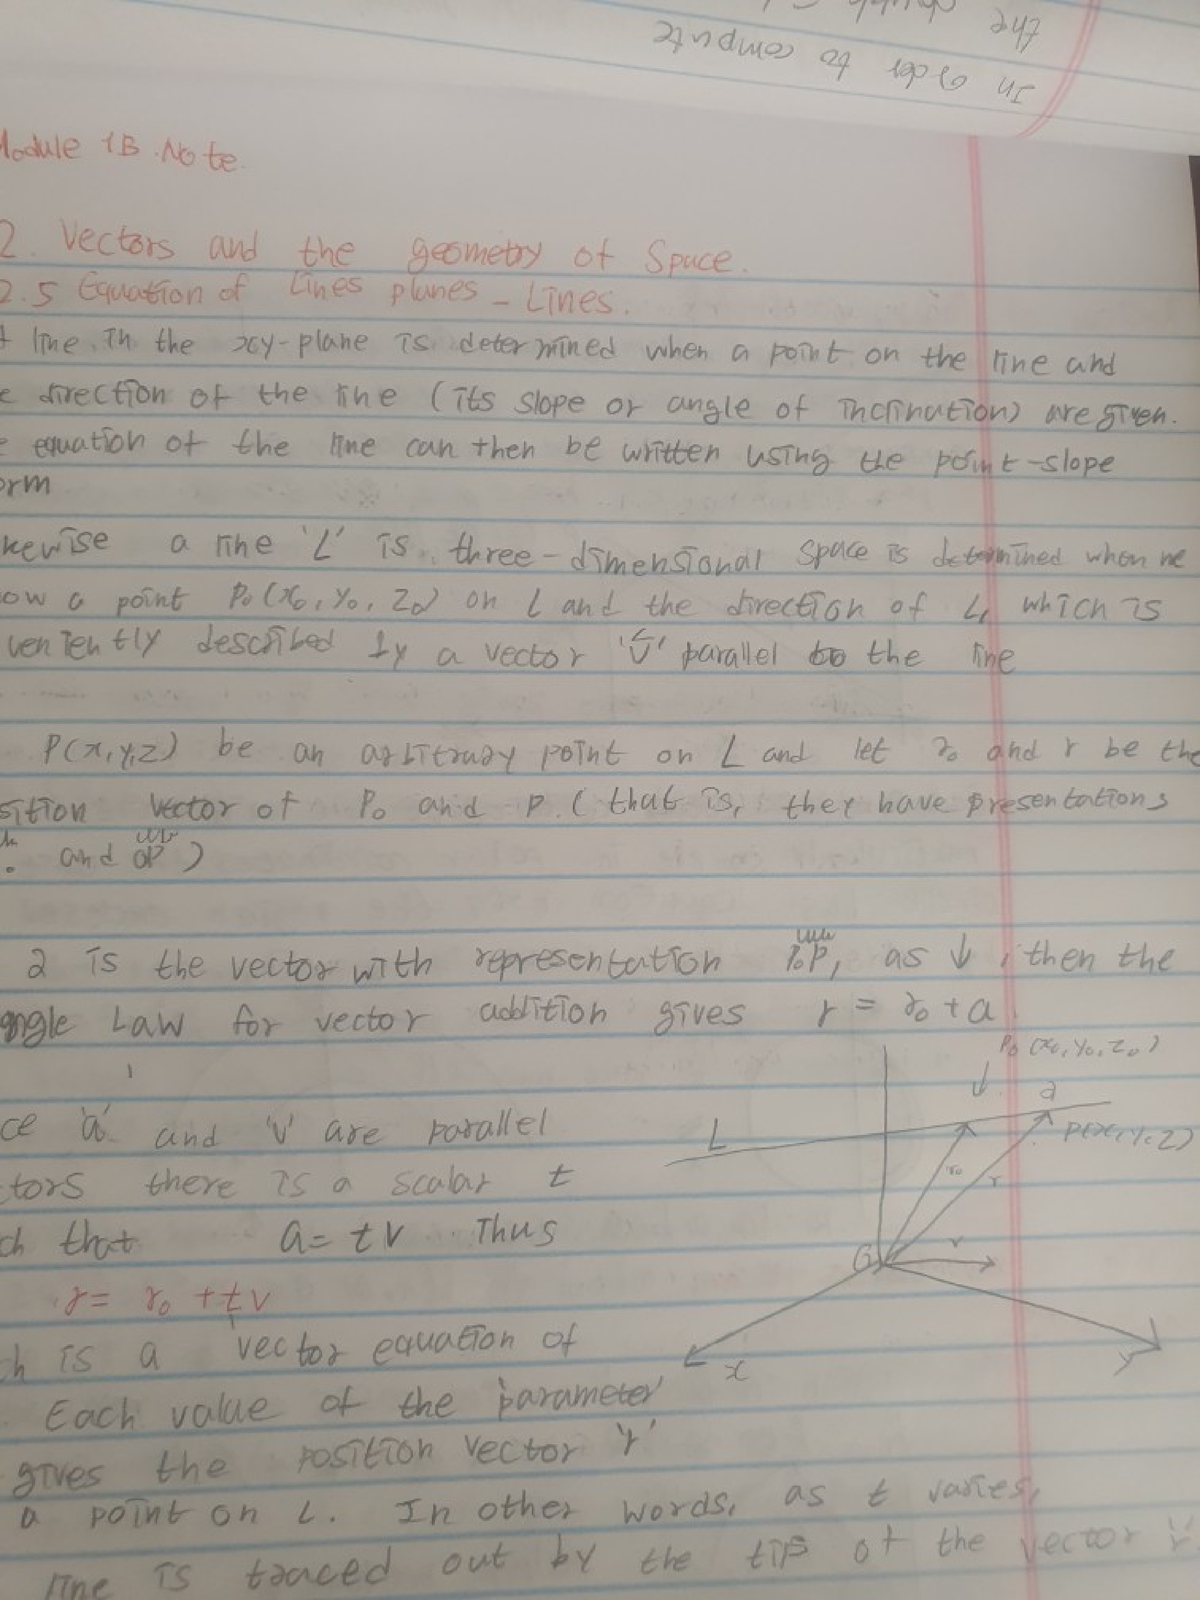 the
In order to compute
Module 1B Note.
2. Vectors and the geometry of Space.
2.5 Equation of Lines planes - Lines.
line in the xy-plane is determined when a point on the line and
direction of the line (its slope or angle of inclination) are given.
equation of the line can then be written using the point-slope
orm
kewise a line 'L' is three-dimensional space is determined when we
ow a point P₀(x₀, y₀, z₀) on L and the direction of L, which is
veniently described by a vector 'v' parallel to the line
P(x,y,z) be an arbitrary point on L and let r₀ and r be the
sition vector of P₀ and P. (that is, they have presentations
and OP)
a is the vector with representation P₀P, as ↓, then the
angle Law for vector addition gives r = r₀ + a
P₀ (x₀, y₀, z₀)
↓ a
ce 'a' and 'v' are parallel
L
P(x, y, z)
tors there is a scalar t
r₀ r
ch that a = tv Thus
O v
r = r₀ + tv
ch is a vector equation of
x y
Each value of the 'parameter'
gives the position vector 'r'
a point on L. In other words, as t varies,
line is traced out by the tip of the vector r.